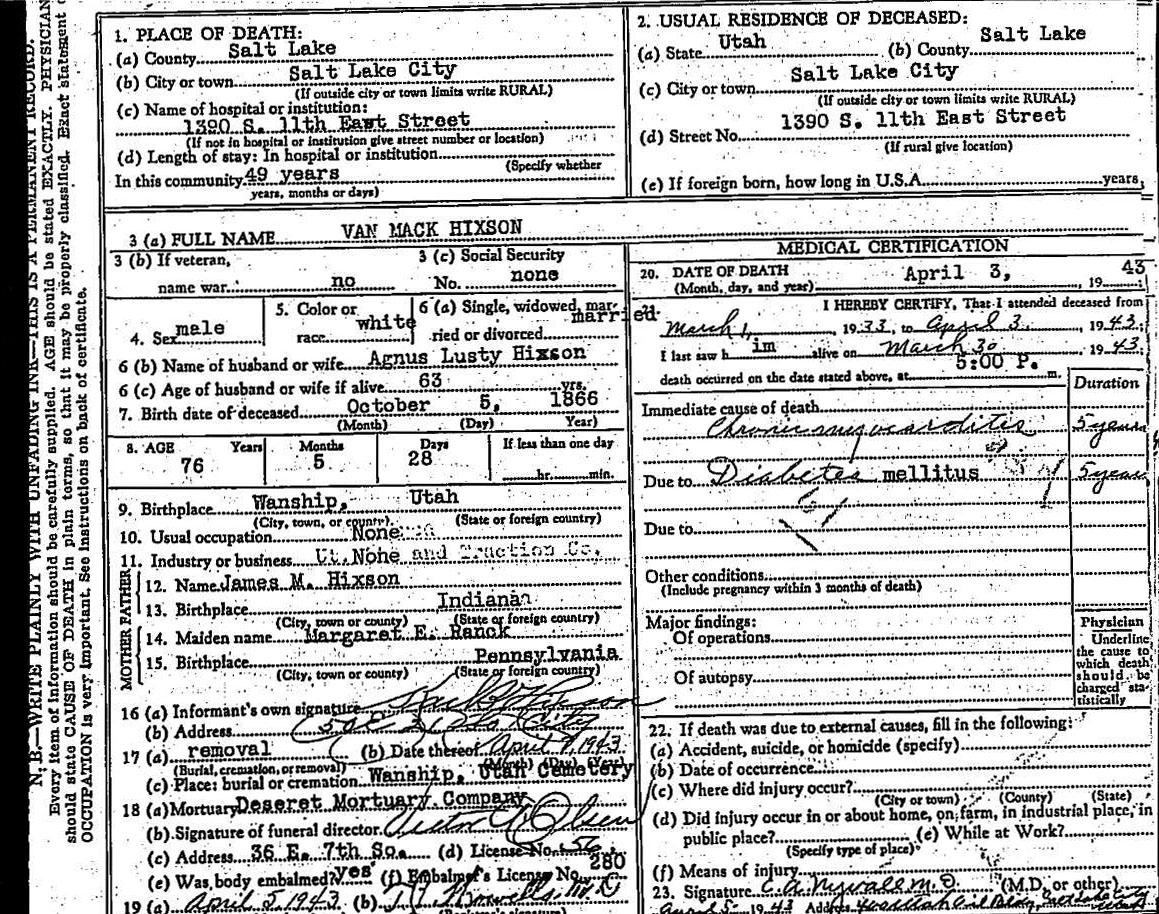 N. B.—WRITE PLAINLY WITH UNFADING INK—THIS IS A PERMANENT RECORD.
Every item of information should be carefully supplied. AGE should be stated EXACTLY. PHYSICIAN
should state CAUSE OF DEATH in plain terms, so that it may be properly classified. Exact statement of
OCCUPATION is very important. See instructions on back of certificate.
1. PLACE OF DEATH:
(a) County Salt Lake
(b) City or town Salt Lake City
(If outside city or town limits write RURAL)
(c) Name of hospital or institution:
1390 S. 11th East Street
(If not in hospital or institution give street number or location)
(d) Length of stay: In hospital or institution
(Specify whether
In this community 49 years
years, months or days)
2. USUAL RESIDENCE OF DECEASED:
(a) State Utah (b) County Salt Lake
(c) City or town Salt Lake City
(If outside city or town limits write RURAL)
(d) Street No. 1390 S. 11th East Street
(If rural give location)
(e) If foreign born, how long in U.S.A. years
3 (a) FULL NAME VAN MACK HIXSON
3 (b) If veteran, name war no
3 (c) Social Security No. none
4. Sex male
5. Color or race white
6 (a) Single, widowed, married or divorced married
6 (b) Name of husband or wife Agnus Lusty Hixson
6 (c) Age of husband or wife if alive 63 yrs.
7. Birth date of deceased October 5, 1866
(Month) (Day) Year)
8. AGE Years Months Days If less than one day
76 5 28 hr. min.
9. Birthplace Wanship, Utah
(City, town, or county) (State or foreign country)
10. Usual occupation None
11. Industry or business Ut. None and Traction Co.
FATHER
12. Name James M. Hixson
13. Birthplace Indiana
(City, town or county) (State or foreign country)
MOTHER
14. Maiden name Margaret E. Ranck
15. Birthplace Pennsylvania
(City, town or county) (State or foreign country)
16 (a) Informant's own signature
(b) Address City
17 (a) removal (b) Date thereof April 7, 1943
(Burial, cremation, or removal) (Month) (Day) (Year)
(c) Place: burial or cremation Wanship, Utah Cemetery
18 (a) Mortuary Deseret Mortuary Company
(b) Signature of funeral director Olsen
(c) Address 36 E. 7th So. (d) License No. 56
(e) Was body embalmed? yes (f) Embalmer's License No. 280
19 (a) April 5 1943 (b)
MEDICAL CERTIFICATION
20. DATE OF DEATH April 3, 1943
(Month, day, and year)
21. I HEREBY CERTIFY, That I attended deceased from
March 1, 1933, to April 3, 1943
I last saw him alive on March 30 1943
death occurred on the date stated above, at 5:00 P. m.
Duration
Immediate cause of death
Chronic myocarditis 5 years
Due to Diabetes mellitus 5 years
Due to
61
Other conditions
(Include pregnancy within 3 months of death)
Major findings:
Of operations
Of autopsy
Physician
Underline the cause to which death should be charged statistically
22. If death was due to external causes, fill in the following:
(a) Accident, suicide, or homicide (specify)
(b) Date of occurrence
(c) Where did injury occur?
(City or town) (County) (State)
(d) Did injury occur in or about home, on farm, in industrial place, in
public place? (e) While at Work?
(Specify type of place)
(f) Means of injury
23. Signature M.D. (M.D., or other)
April 5 1943 Address